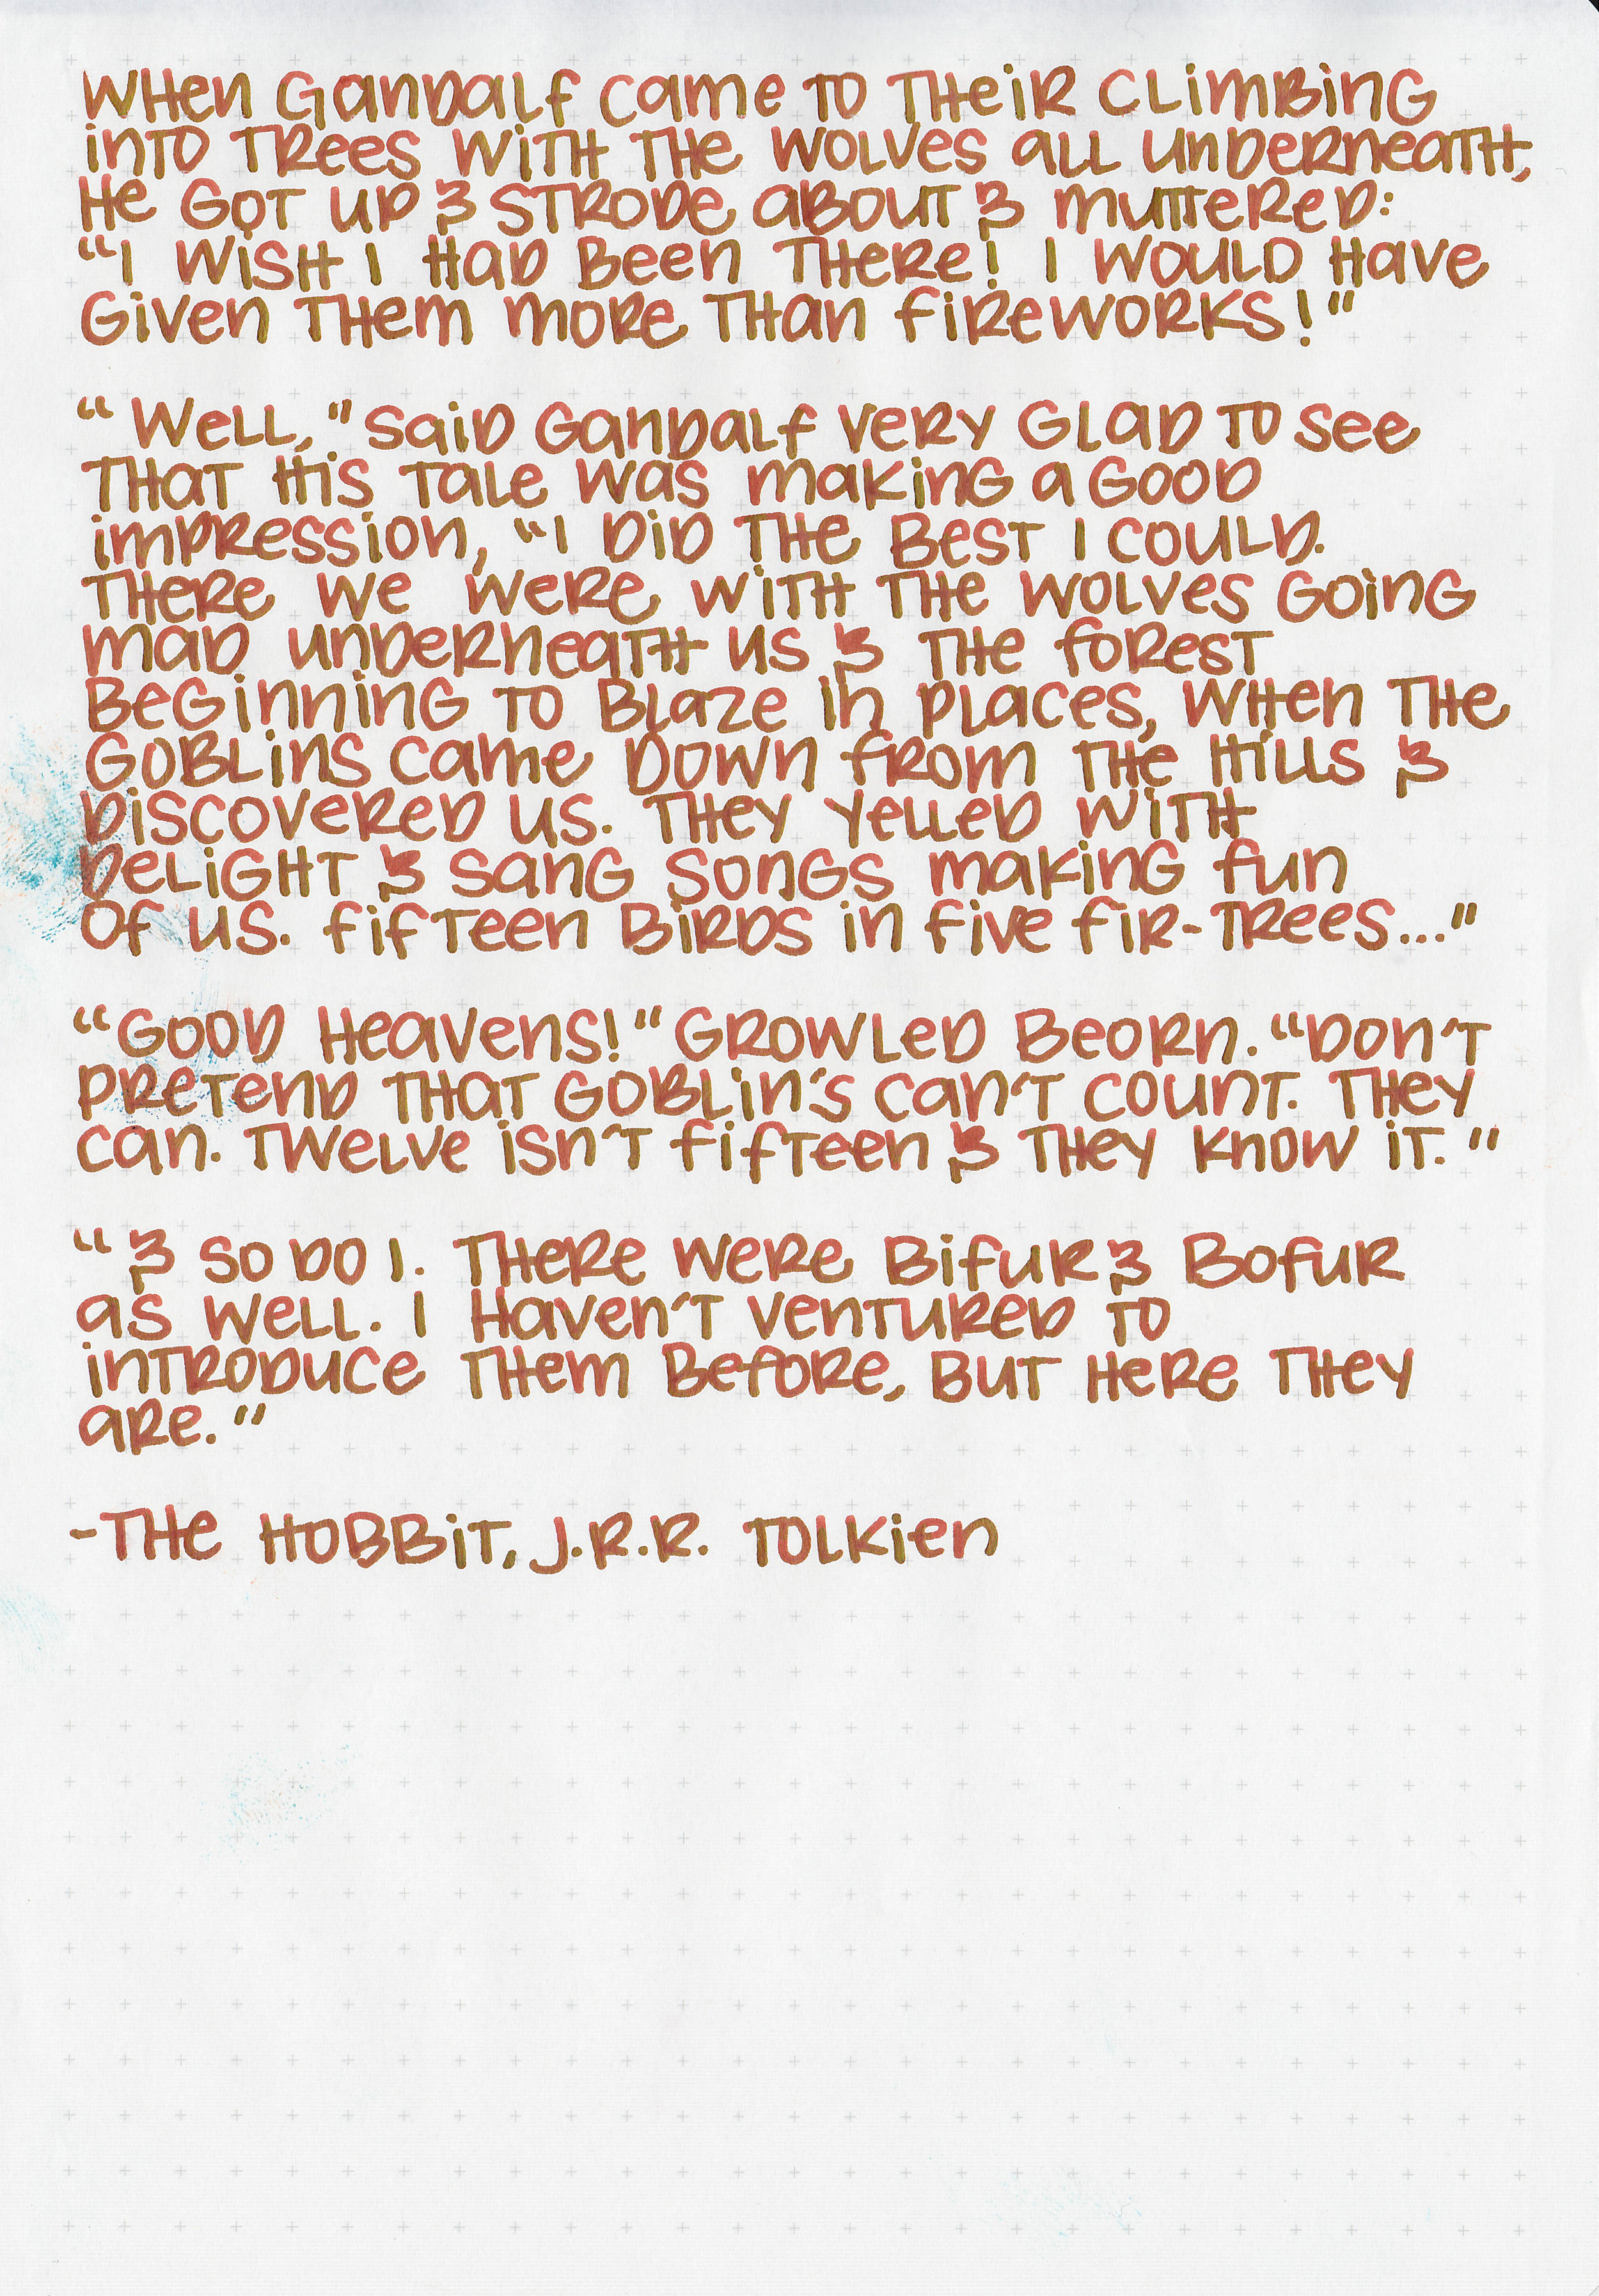 When Gandalf came to their climbing
into trees with the wolves all underneath,
he got up & strode about & muttered:
“I wish I had been there! I would have
given them more than fireworks!”
“Well,” said Gandalf very glad to see
that his tale was making a good
impression, “I did the best I could.
There we were with the wolves going
mad underneath us & the forest
beginning to blaze in places, when the
goblins came down from the hills &
discovered us. They yelled with
delight & sang songs making fun
of us. Fifteen birds in five fir-trees...”
“Good heavens!” growled Beorn. “Don't
pretend that goblin's can't count. They
can. Twelve isn't fifteen & they know it.”
“& so do I. There were Bifur & Bofur
as well. I haven't ventured to
introduce them before, but here they
are.”
-The Hobbit, J.R.R. Tolkien